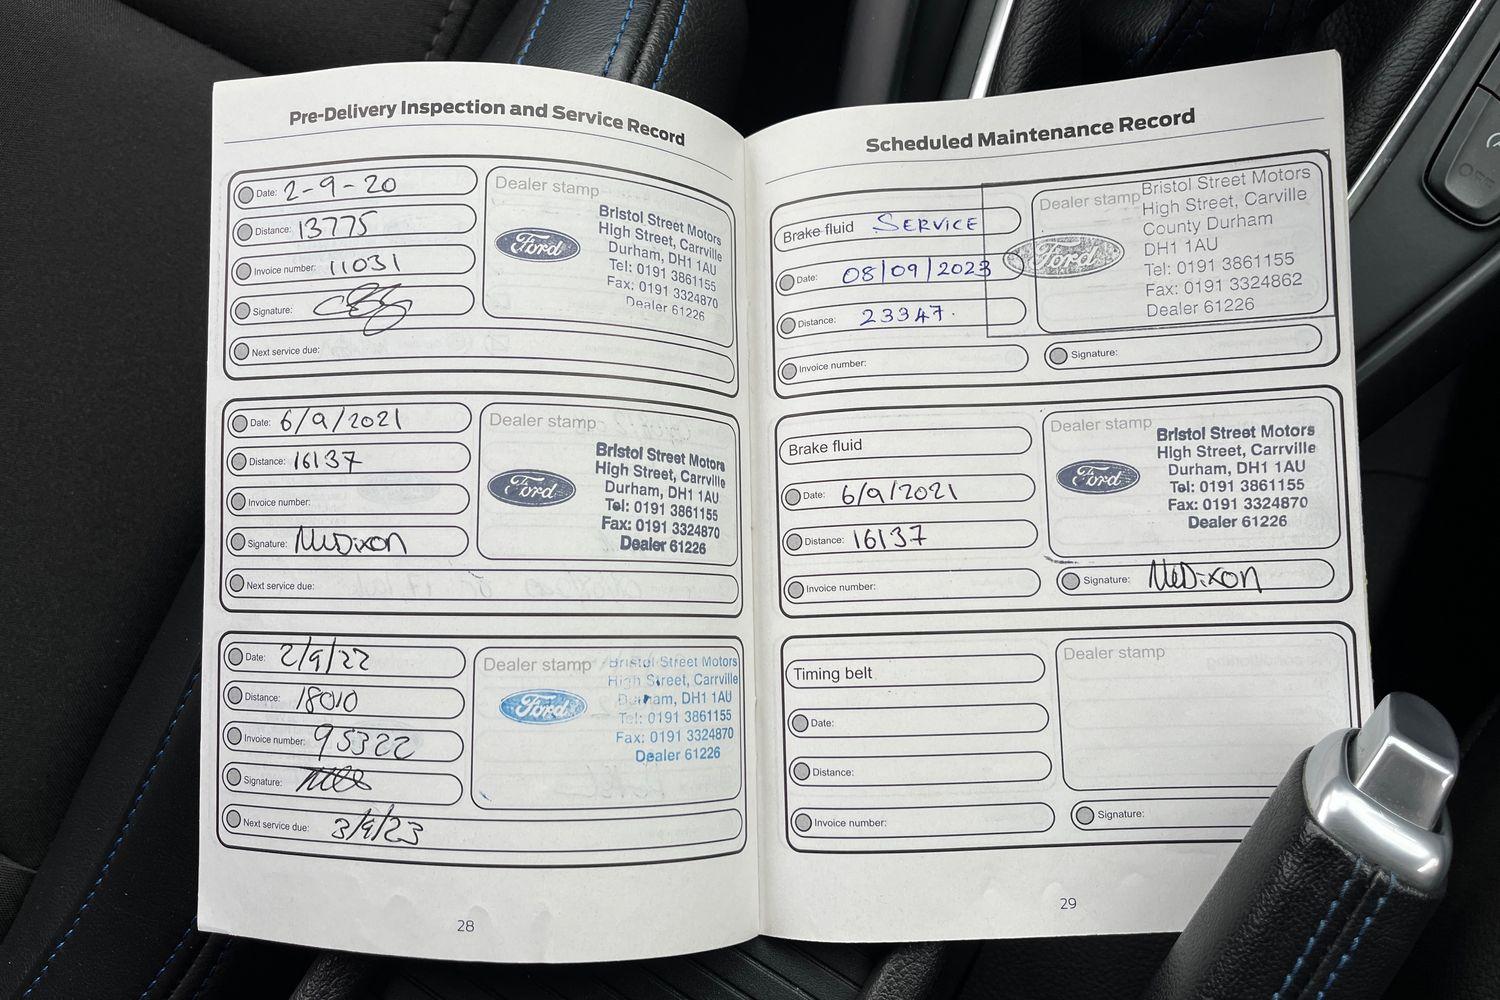 Pre-Delivery Inspection and Service Record
Date: 2-9-20
Distance: 13775
Invoice number: 11031
Signature:
Next service due:
Dealer stamp
Ford
Bristol Street Motors
High Street, Carrville
Durham, DH1 1AU
Tel: 0191 3861155
Fax: 0191 3324870
Dealer 61226
Date: 6/9/2021
Distance: 16137
Invoice number:
Signature: McDixon
Next service due:
Dealer stamp
Ford
Bristol Street Motors
High Street, Carrville
Durham, DH1 1AU
Tel: 0191 3861155
Fax: 0191 3324870
Dealer 61226
Date: 2/9/22
Distance: 18010
Invoice number: 95322
Signature:
Next service due: 3/9/23
Dealer stamp
Ford
Bristol Street Motors
High Street, Carrville
Durham, DH1 1AU
Tel: 0191 3861155
Fax: 0191 3324870
Dealer 61226
28
Scheduled Maintenance Record
Brake fluid SERVICE
Date: 08/09/2023
Distance: 23347.
Invoice number:
Dealer stamp
Ford
Bristol Street Motors
High Street, Carville
County Durham
DH1 1AU
Tel: 0191 3861155
Fax: 0191 3324862
Dealer 61226
Signature:
Brake fluid
Date: 6/9/2021
Distance: 16137
Invoice number:
Dealer stamp
Ford
Bristol Street Motors
High Street, Carrville
Durham, DH1 1AU
Tel: 0191 3861155
Fax: 0191 3324870
Dealer 61226
Signature: McDixon
Timing belt
Date:
Distance:
Invoice number:
Dealer stamp
Signature:
29
OFF